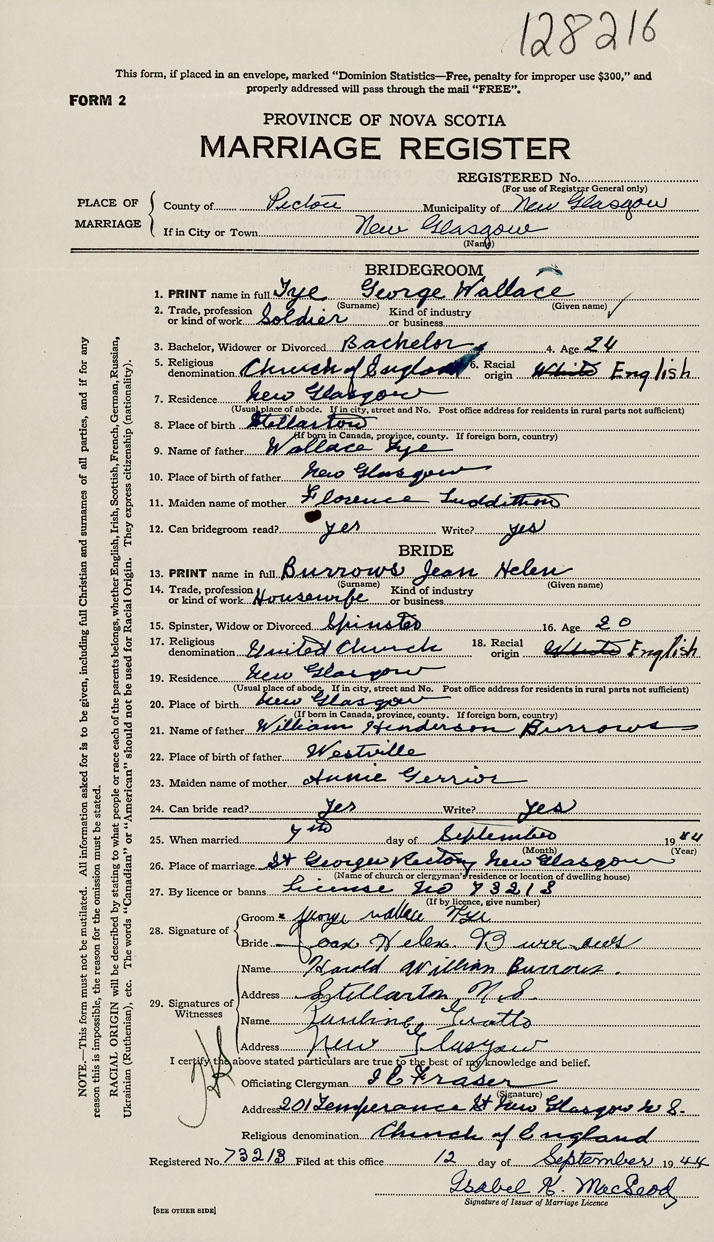 128216
This form, if placed in an envelope, marked "Dominion Statistics—Free, penalty for improper use $300," and
properly addressed will pass through the mail "FREE".
FORM 2
PROVINCE OF NOVA SCOTIA
MARRIAGE REGISTER
REGISTERED No.
(For use of Registrar General only)
PLACE OF MARRIAGE
County of Pictou Municipality of New Glasgow
If in City or Town New Glasgow
(Name)
BRIDEGROOM
1. PRINT name in full Tye George Wallace
(Surname) (Given name)
2. Trade, profession or kind of work Soldier Kind of industry or business
3. Bachelor, Widower or Divorced Bachelor 4. Age 24
5. Religious denomination Church of England 6. Racial origin White English
7. Residence New Glasgow
(Usual place of abode. If in city, street and No. Post office address for residents in rural parts not sufficient)
8. Place of birth Stellarton
(If born in Canada, province, county. If foreign born, country)
9. Name of father Wallace Tye
10. Place of birth of father New Glasgow
11. Maiden name of mother Florence
12. Can bridegroom read? yes Write? yes
BRIDE
13. PRINT name in full Burrows Jean Helen
(Surname) (Given name)
14. Trade, profession or kind of work Housewife Kind of industry or business
15. Spinster, Widow or Divorced Spinster 16. Age 20
17. Religious denomination United Church 18. Racial origin White English
19. Residence New Glasgow
(Usual place of abode. If in city, street and No. Post office address for residents in rural parts not sufficient)
20. Place of birth New Glasgow
(If born in Canada, province, county. If foreign born, country)
21. Name of father William Henderson Burrows
22. Place of birth of father Westville
23. Maiden name of mother Annie Gerrior
24. Can bride read? Yes Write? Yes
25. When married 7th day of September 1944
(Month) (Year)
26. Place of marriage St Georges Rectory New Glasgow
(Name of church or clergyman's residence or location of dwelling house)
27. By licence or banns License No 73213
(If by licence, give number)
28. Signature of
Groom George Wallace Tye
Bride Jean Helen Burrows
29. Signatures of Witnesses
Name Harold William Burrows.
Address Stellarton N.S.
Name Pauline
Address New Glasgow
I certify the above stated particulars are true to the best of my knowledge and belief.
Officiating Clergyman Fraser
(Signature)
Address 201 Temperance St New Glasgow N.S.
Religious denomination Church of England
Registered No. 73213 Filed at this office 12 day of September 1944
Isabel K. MacLeod
Signature of Issuer of Marriage Licence
[SEE OTHER SIDE]
NOTE.—This form must not be mutilated. All information asked for is to be given, including full Christian and surnames of all parties, and if for any
reason this is impossible, the reason for the omission must be stated.
RACIAL ORIGIN will be described by stating to what people or race each of the parents belongs, whether English, Irish, Scottish, French, German, Russian,
Ukrainian (Ruthenian), etc. The words "Canadian" or "American" should not be used for Racial Origin. They express citizenship (nationality).